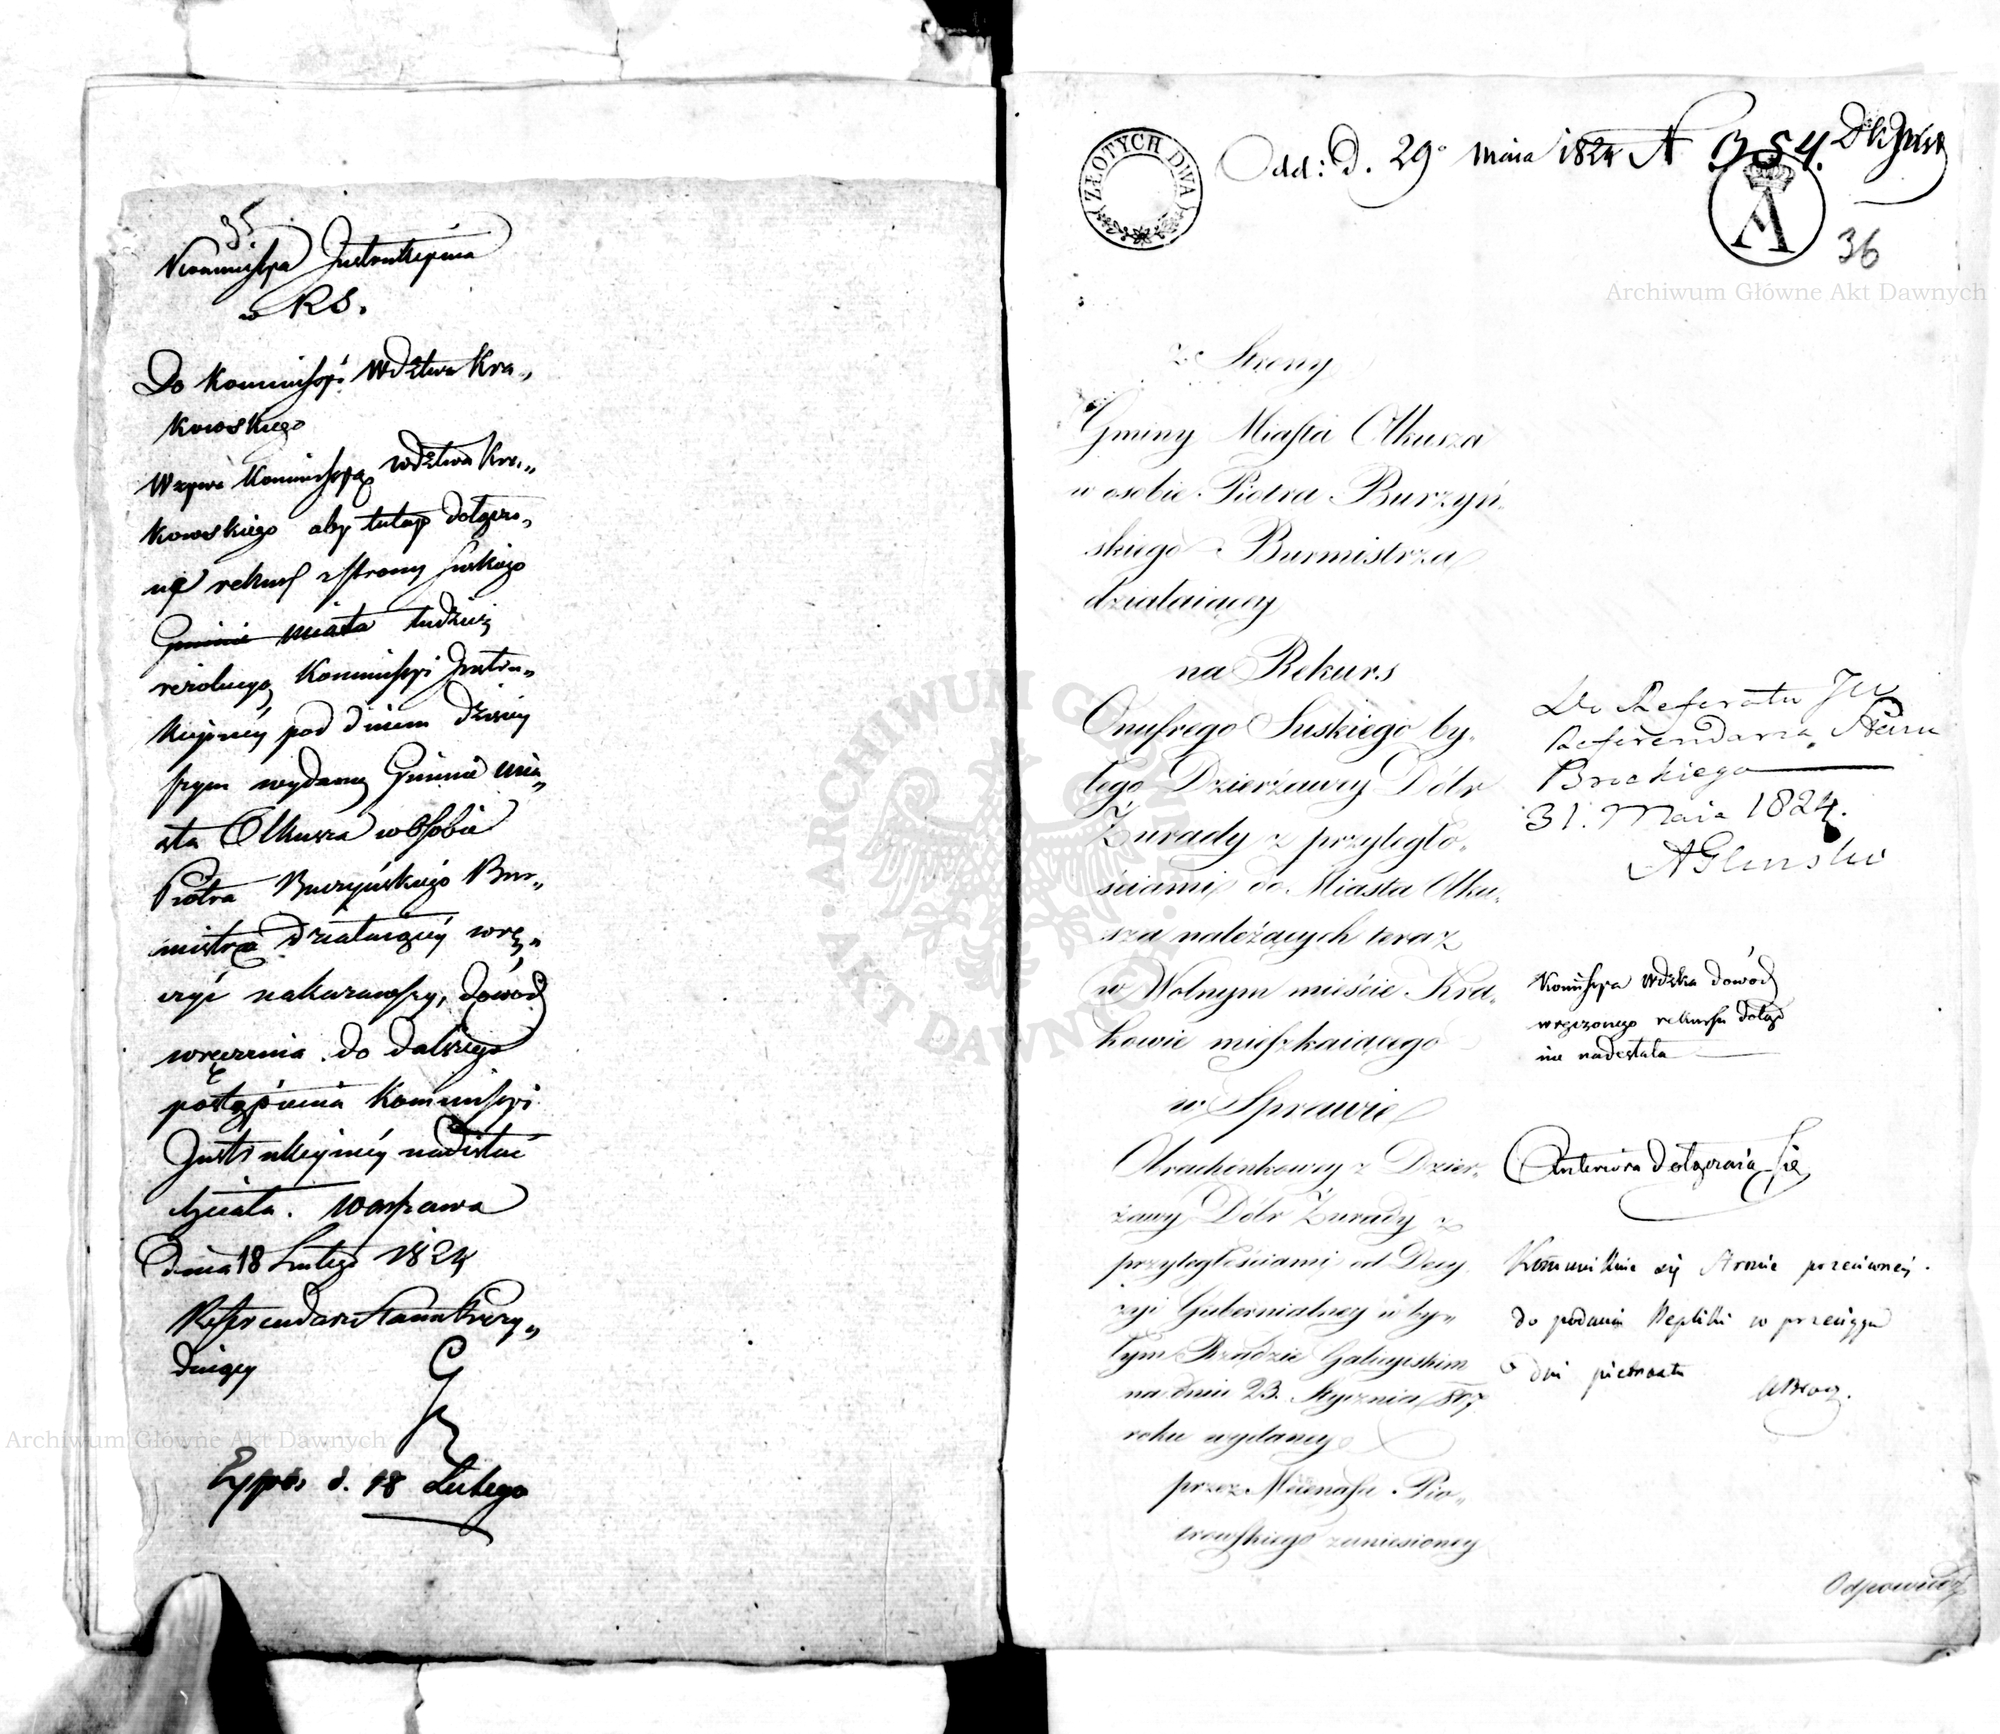 35
Kommissya Instrukcyina
w RS.
Do Kommissyi Wdztwa Kra„
kowskiego
Wzywa Kommissyą Wdztwa Kra„
kowskiego aby tutay dołączo„
ny rekurs z strony Suskiego
Gminie miasta tudzież
rezolucyą Kommissyi Instru„
kcyiney pod dniem dzisiey
szym wydaną Gminie mia„
sta Olkusza w osobie
Piotra Burzyńskiego Bur„
mistrza działaiącey wrę„
czyć nakazawszy, dowód
wręczenia do dalszego
postąpienia Kommissyi
Instrukcyiney nadesłać
chciała. Warszawa
dnia 18 Lutego 1824
Referendarz Stanu Prezy„
duiący
G
Exped. d. 18 Lutego
ZŁOTYCH DWA
Odd: d. 29 maia 1824 N 354.
A
36
z Strony
Gminy Miasta Olkusza
w osobie Piotra Burzyń„
skiego Burmistrza
działaiący
na Rekurs
Onufrego Suskiego by„
łego Dzierżawcy Dóbr
Żurady z przyległo„
ściami do Miasta Olku„
sza należących teraz
w Wolnym mieście Kra„
kowie mieszkaiącego
w Sprawie
Obrachunkowey z Dzier„
żawy Dóbr Żurady z
przyległościami od Decy
zyi Gubernialney w by„
łym Rządzie Galicyiskim
na dniu 23. Stycznia 1807
roku wydaney
przez Mecenasa Pio„
trowskiego zaniesioney
Odpowiedź
Do Referatu JW
Referendarza Stanu
Brockiego
31. Maia 1824.
AGliński
Kommissya Wdzka dowód
wręczonego rekursu dotąd
nie nadesłała
Anteriora dołączaią się
Kommunikuie się Stronie przeciwney
do podania Repliki w przeciągu
dni piętnastu
ABrocki.
Archiwum Główne Akt Dawnych
Archiwum Główne Akt Dawnych
ARCHIWUM GŁÓWNE AKT DAWNYCH